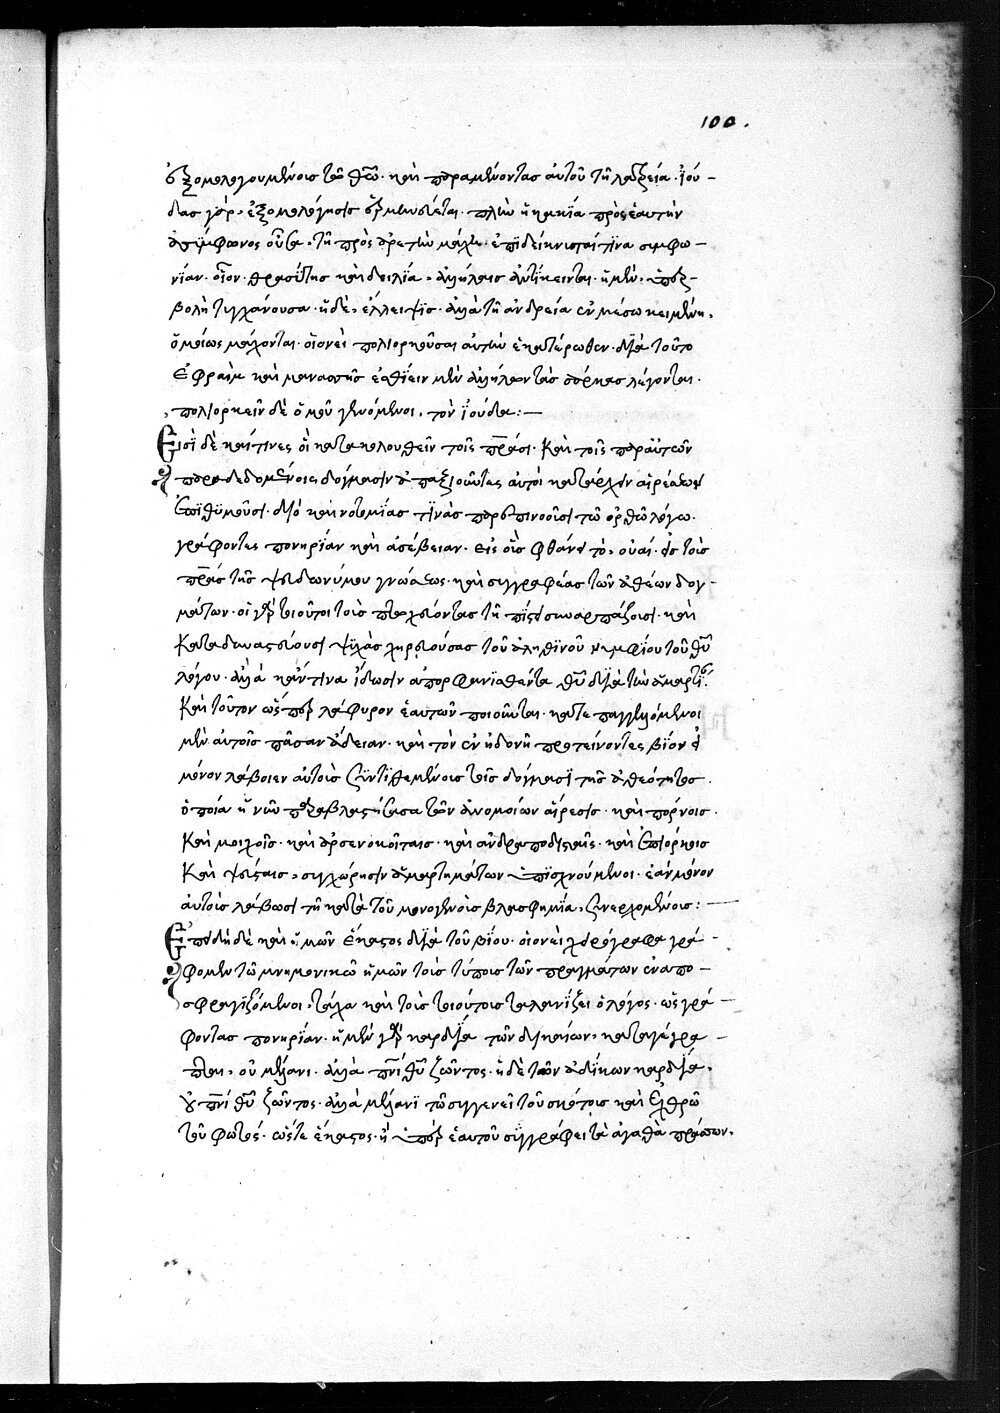 100.
ἐξομολογουμένοις τῶ θεῶ. καὶ παραμένοντας αὐτοῦ τῆ λατρεία. ἰού-
δας γὰρ, ἐξομολόγησις ἑρμηνεύεται. πλὴν ἡ κακία πρὸς ἑαυτὴν
ἀσύμφωνος οὖσα, τῆ πρὸς ἀρετὴν μάχη, ἐπιδείκνυσταί τινα συμφω-
νίαν. οἷον. θρασύτης καὶ δειλία, ἀλλήλαις ἀντίκεινται. ἡ μὲν, ὑπερ-
βολὴ τυγχάνουσα. ἡ δὲ, ἔλλειψις. ἀλλὰ τῆ ἀνδρεία ἐν μέσω κειμένη,
ὁμοίως μάχονται. οἱονεὶ πολιορκοῦσαι αὐτὴν ἑκατέρωθεν. διὰ τοῦτο
ἐφραὶμ καὶ μανασσῆς ἐσθίειν μὲν ἀλλήλων τὰς σάρκας λέγονται.
πολιορκεῖν δὲ ὁμοῦ γενόμενοι, τὸν ἰούδα:—
Εἰσὶ δὲ καί τινες οἳ κατακολουθεῖν τοῖς πράσι. καὶ τοῖς παρ' αὐτῶν
παραδεδομένοις δόγμασιν ἀπαξιοῦντες αὐτοὶ κατάρχειν αἱρέσεων
ἐπιθυμοῦσι. διὸ καὶ νοτομίας τινὰς παρεπινοοῦσι τῶ ὀρθῶ λόγω.
γράφοντες πονηρίαν καὶ ἀσέβειαν. εἰς οὓς φθάνει τὸ, οὐαί. ἐν τοῖς
πρᾶσ τῆς ψευδωνύμου γνώσεως. καὶ συγγραφέας τῶν ἀθέων δογ-
μάτων. οἱ γὰρ τοιοῦτοι τοὺς πτωχεύοντας τῆ πίστει συναρπάζουσι. καὶ
καταδυναστεύουσι ψυχὰς χηρευούσας τοῦ ἀληθινοῦ νυμφίου τοῦ θῦ
λόγου. ἀλλὰ κἄν τινα ἴδωσιν ἀπορφανισθέντα θῦ διὰ τὴν ἁμαρτί
καὶ τοῦτον ὥσπερ λάφυρον ἑαυτῶν ποιοῦνται. κατεπαγγελλόμενοι
μὲν αὐτοῖς πᾶσαν ἄδειαν. καὶ τὸν ἐν ἡδονῆ προτείνοντες βίον εἰ
μόνον λάβοιεν αὐτοὺς συντιθεμένους τοῖς δόγμασι τῆς ἀθεότητος.
ὁποία ἡ νῦν παραβλαστήσασα τῶν ἀνομοίων αἵρεσις. καὶ πόρνοις.
καὶ μοιχοῖς. καὶ ἀρσενοκοίταις. καὶ ἀνδραποδισταῖς. καὶ ἐπιόρκοις
καὶ ψεύσταις, συγχώρησιν ἁμαρτημάτων ὑπισχνούμενοι. ἐὰν μόνον
αὐτοὺς λάβωσι τῆ κατὰ τοῦ μονογενοῦς βλασφημία, συνερχομένους:—
Ἐπειδὴ δὲ καὶ ἡμῶν ἕκαστος διὰ τοῦ βίου. οἱονεὶ χειρόγραφα γρά-
φομεν τῶ μνημονικῶ ἡμῶν τοὺς τύπους τῶν πραγμάτων ἐναπο-
σφραγιζόμενοι, τάχα καὶ τοὺς τοιούτους ταλανίζει ὁ λόγος. ὡς γρά-
φοντας πονηρίαν. ἡ μὲν γὰρ καρδία τῶν δικαίων, καταγέγρα-
πται, οὐ μέλανι. ἀλλὰ πνι θῦ ζῶντος. ἡ δὲ τῶν ἀδίκων καρδία,
οὐ πνι θῦ ζῶντος. ἀλλὰ μέλανι τῶ συγγενεῖ τοῦ σκότους καὶ ἐχθρῶ
τοῦ φωτός. ὥστε ἕκαστος. ἢ ὑπὲρ ἑαυτοῦ συγγράφει τὰ ἀγαθὰ πράττων,